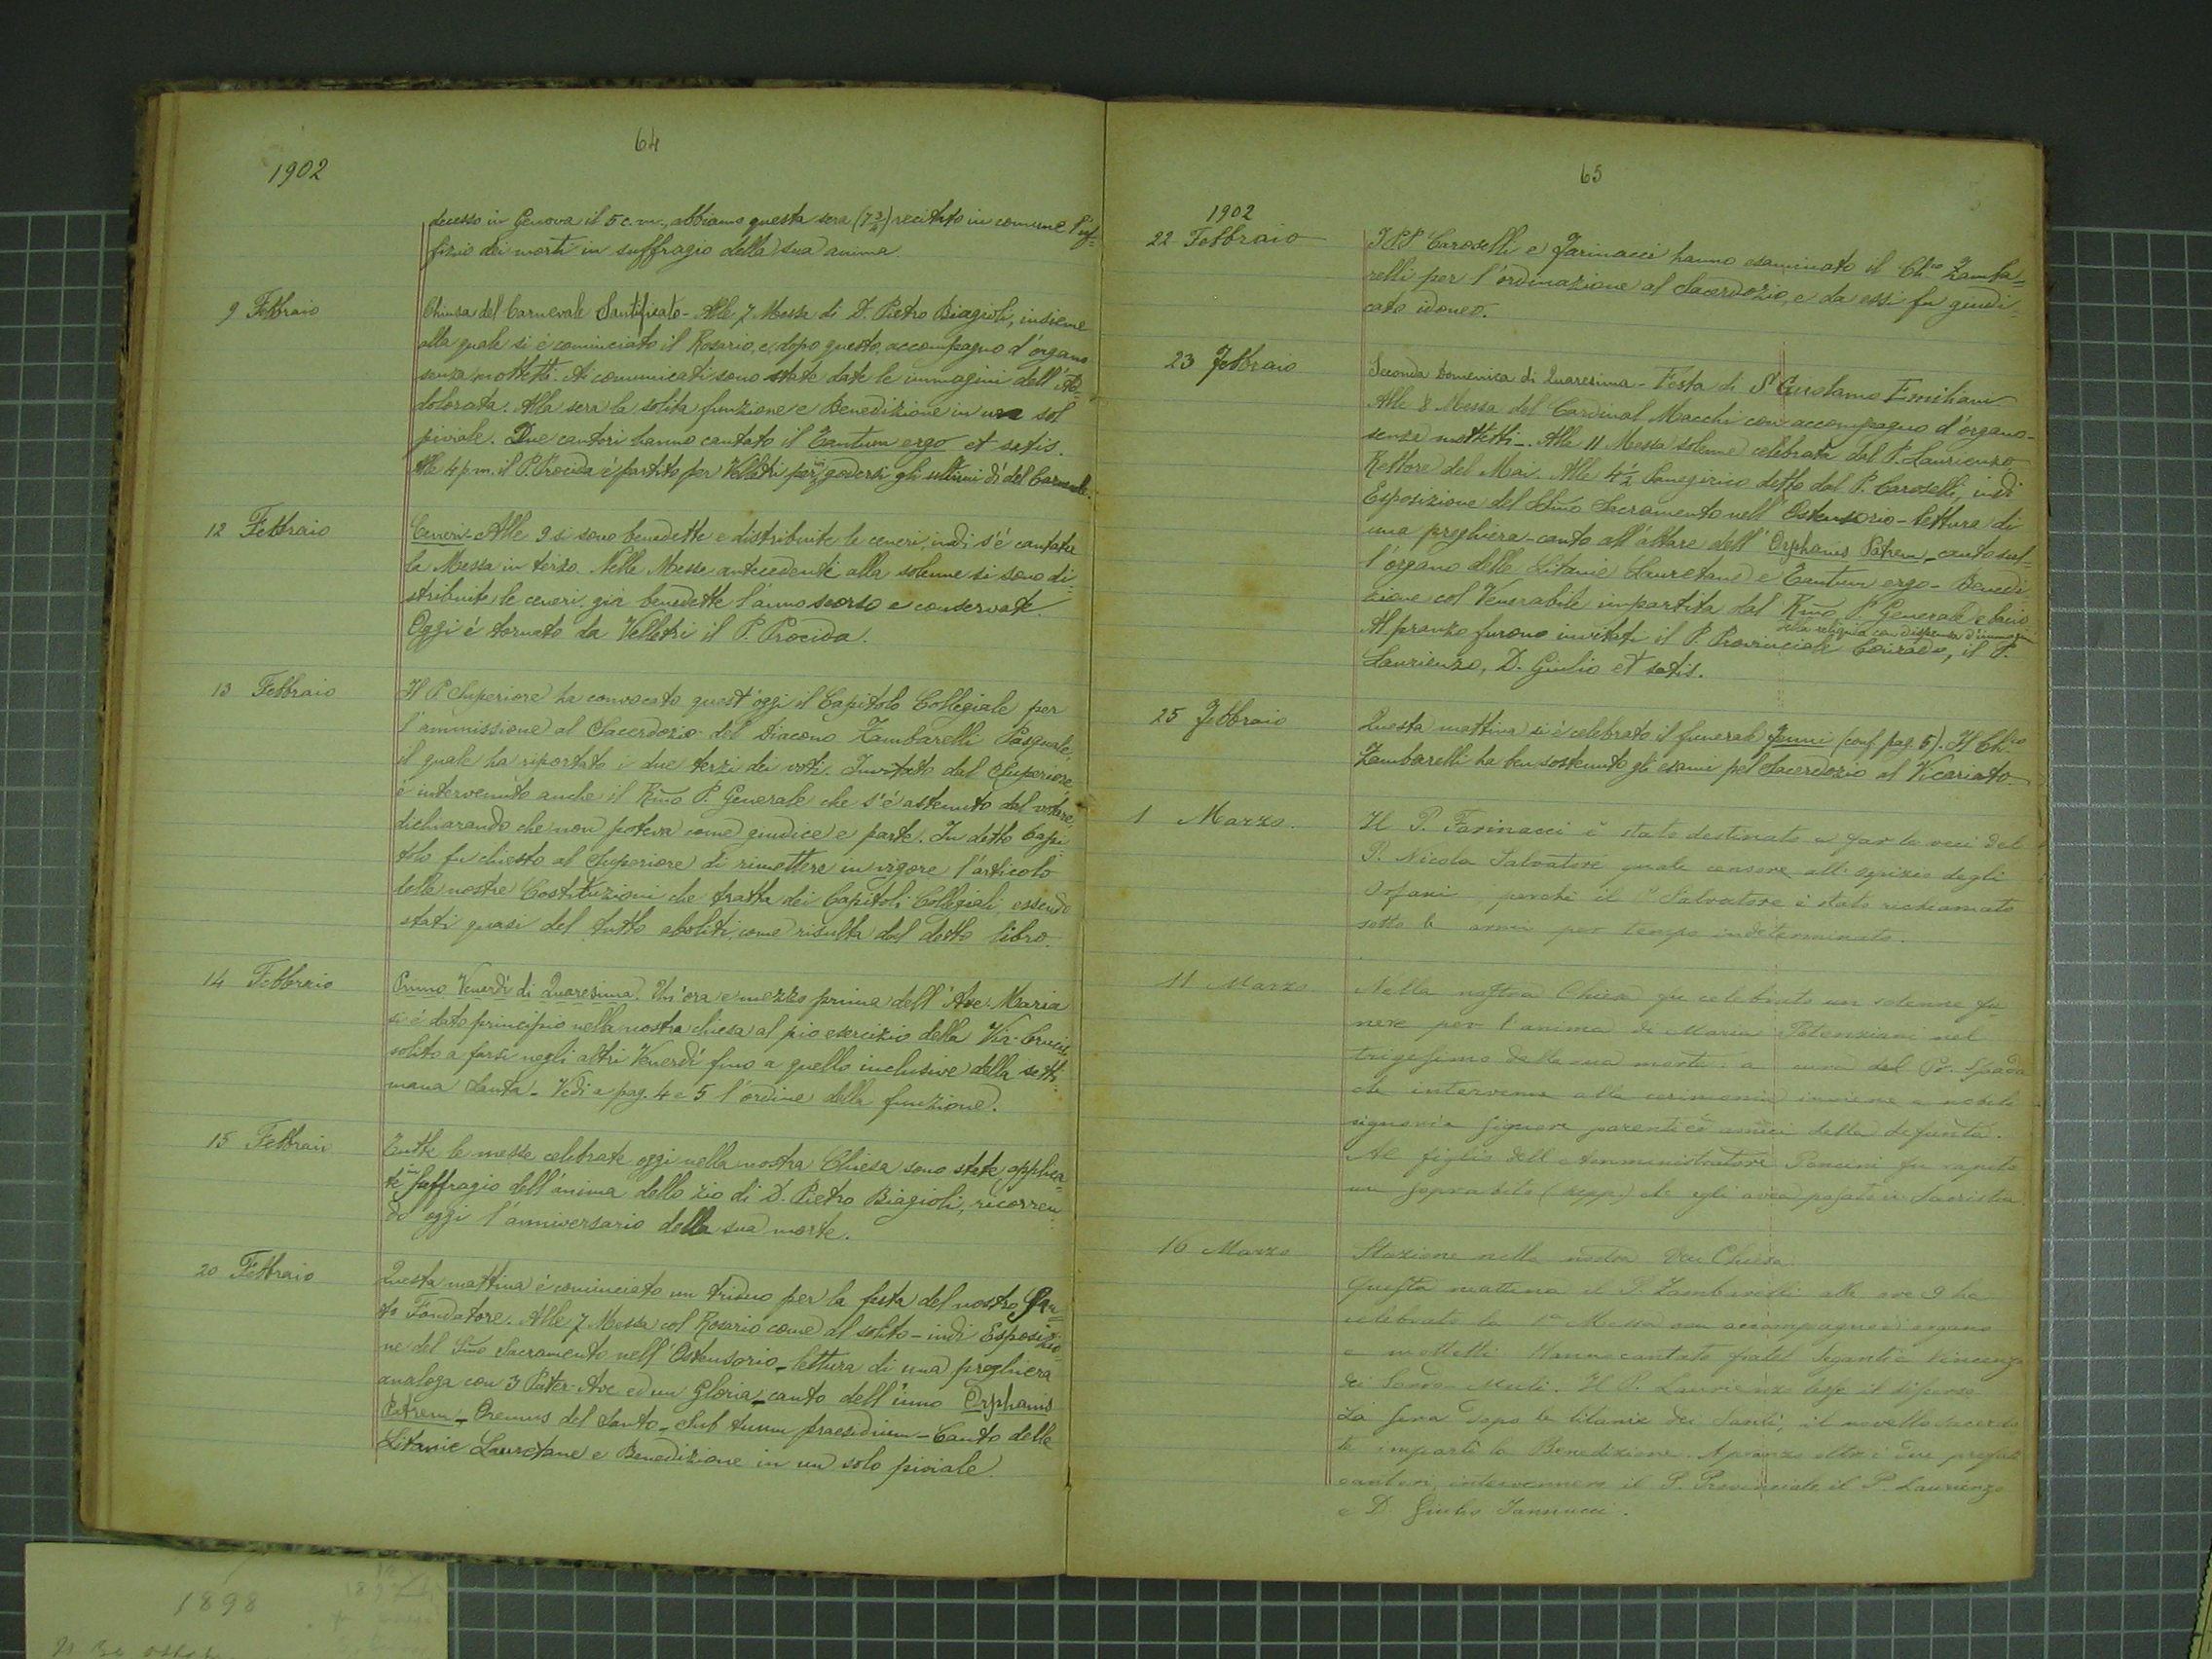 64
1902
decesso in Genova il 5 c. m., abbiamo questa sera (7 3/4) recitato in comune l'uf=
fizio dei morti in suffragio della sua anima.
9 Febbraio
Chiusa del Carnevale Santificato - Alle 7 Messa di D. Pietro Biagioli, insieme
alla quale si è cominciato il Rosario, e, dopo questo, accompagno d'organo
senza mottetti. Ai comunicati sono state date le immagini dell'Ad=
dolorata. Alla sera la solita funzione e Benedizione in un sol
piviale. Due cantori hanno cantato il Tantum ergo et satis.
Alle 4 p.m. il P. Procida è partito per Velletri per ivi godersi gli ultimi dì del Carnevale.
12 Febbraio
Ceneri - Alle 9 si sono benedette e distribuite le ceneri, indi s'è cantata
la Messa in terzo. Nelle Messe antecedenti alla solenne si sono di=
stribuite le ceneri già benedette l'anno scorso e conservate.
Oggi è tornato da Velletri il P. Procida.
13 Febbraio
Il P. Superiore ha convocato quest'oggi il Capitolo Collegiale per
l'ammissione al Sacerdozio del Diacono Zambarelli Pasquale,
il quale ha riportato i due terzi dei voti. Invitato dal Superiore
è intervenuto anche il Rmo P. Generale che s'è astenuto dal votare,
dichiarando che non poteva come giudice e parte. In detto Capi=
tolo fu chiesto al Superiore di rimettere in vigore l'articolo
delle nostre Costituzioni che tratta dei Capitoli Collegiali, essendo
stati quasi del tutto aboliti, come risulta dal detto libro.
14 Febbraio
Primo Venerdì di Quaresima. Un'ora e mezzo prima dell'Ave Maria
si è dato principio nella nostra chiesa al pio esercizio della Via-Crucis,
solito a farsi negli altri Venerdì fino a quello inclusive della setti=
mana santa. Vedi a pag. 4 e 5 l'ordine della funzione.
15 Febbraio
Tutte le messe celebrate oggi nella nostra Chiesa sono state applica=
te in suffragio dell'anima dello zio di D. Pietro Biagioli, ricorren=
do oggi l'anniversario della sua morte.
20 Febbraio
Questa mattina è cominciato un triduo per la festa del nostro San=
to Fondatore. Alle 7 Messa col Rosario come al solito - indi Esposizio=
ne del Smo Sacramento nell'Ostensorio - lettura di una preghiera
analoga con 3 Pater Ave ed un Gloria - canto dell'inno Orphanis
Patrem - Oremus del Santo - Sub tuum praesidium - Canto delle
Litanie Lauretane e Benedizione in un solo piviale.
65
1902
22 Febbraio
I PP. Caroselli e Farinacci hanno esaminato il Ch.co Zamba=
relli per l'ordinazione al Sacerdozio, e da essi fu giudi=
cato idoneo.
23 Febbraio
Seconda Domenica di Quaresima - Festa di S. Girolamo Emiliani
Alle 8 Messa del Cardinal Macchi con accompagno d'organo
senza mottetti. Alle 11 Messa solenne celebrata dal P. Laurienzo
Rettore dei Mai. Alle 4 1/2 Panegirico detto dal P. Caroselli, indi
Esposizione del SSmo Sacramento nell'Ostensorio - lettura di
una preghiera - canto all'altare dell'Orphanis Patrem - canto sul=
l'organo delle Litanie Lauretane e Tantum ergo - Benedi=
zione col Venerabile impartita dal Rmo P. Generale e bacio
della reliquia con dispensa d'immagini
Al pranzo furono invitati il P. Provinciale Conrado, il P.
Laurienzo, D. Giulio et satis.
25 Febbraio
Questa mattina si è celebrato il funerale Jenni (conf. pag. 5). Il Ch.co
Zambarelli ha ben sostenuto gli esami pel Sacerdozio al Vicariato.
1 Marzo.
Il P. Farinacci è stato destinato a far le veci del
P. Nicola Salvatore quale censore all'ospizio degli
Orfani, perchè il P. Salvatore è stato richiamato
sotto le armi per tempo indeterminato.
11 Marzo
Nella nostra Chiesa fu celebrato un solenne fu
nere per l'anima di Maria Potenziani nel
trigesimo della sua morte: a cura del Pr. Spada
che intervenne alla cerimonia insieme a nobili
signori e signore parenti ed amici della defunta.
Al figlio dell'Amministratore Poncini fu rapito
un soprabito che egli avea posato in Sacristia.
16 Marzo
Stazione nella nostra Ven. Chiesa.
Questa mattina il P. Zambarelli alle ore 9 ha
celebrato la 1a Messa con accompagno di organo
e mottetti. Hanno cantato fratel e Vincenzo
dei Sordo Muti. Il P. Laurienzo lesse il discorso
La sera dopo le litanie dei Santi, il novello sacerdo
te impartì la Benedizione. A pranzo oltre i due prefati
cantori, intervennero il P. Provinciale il P. Laurienzo
e D. Giulio Iannucci.
1898